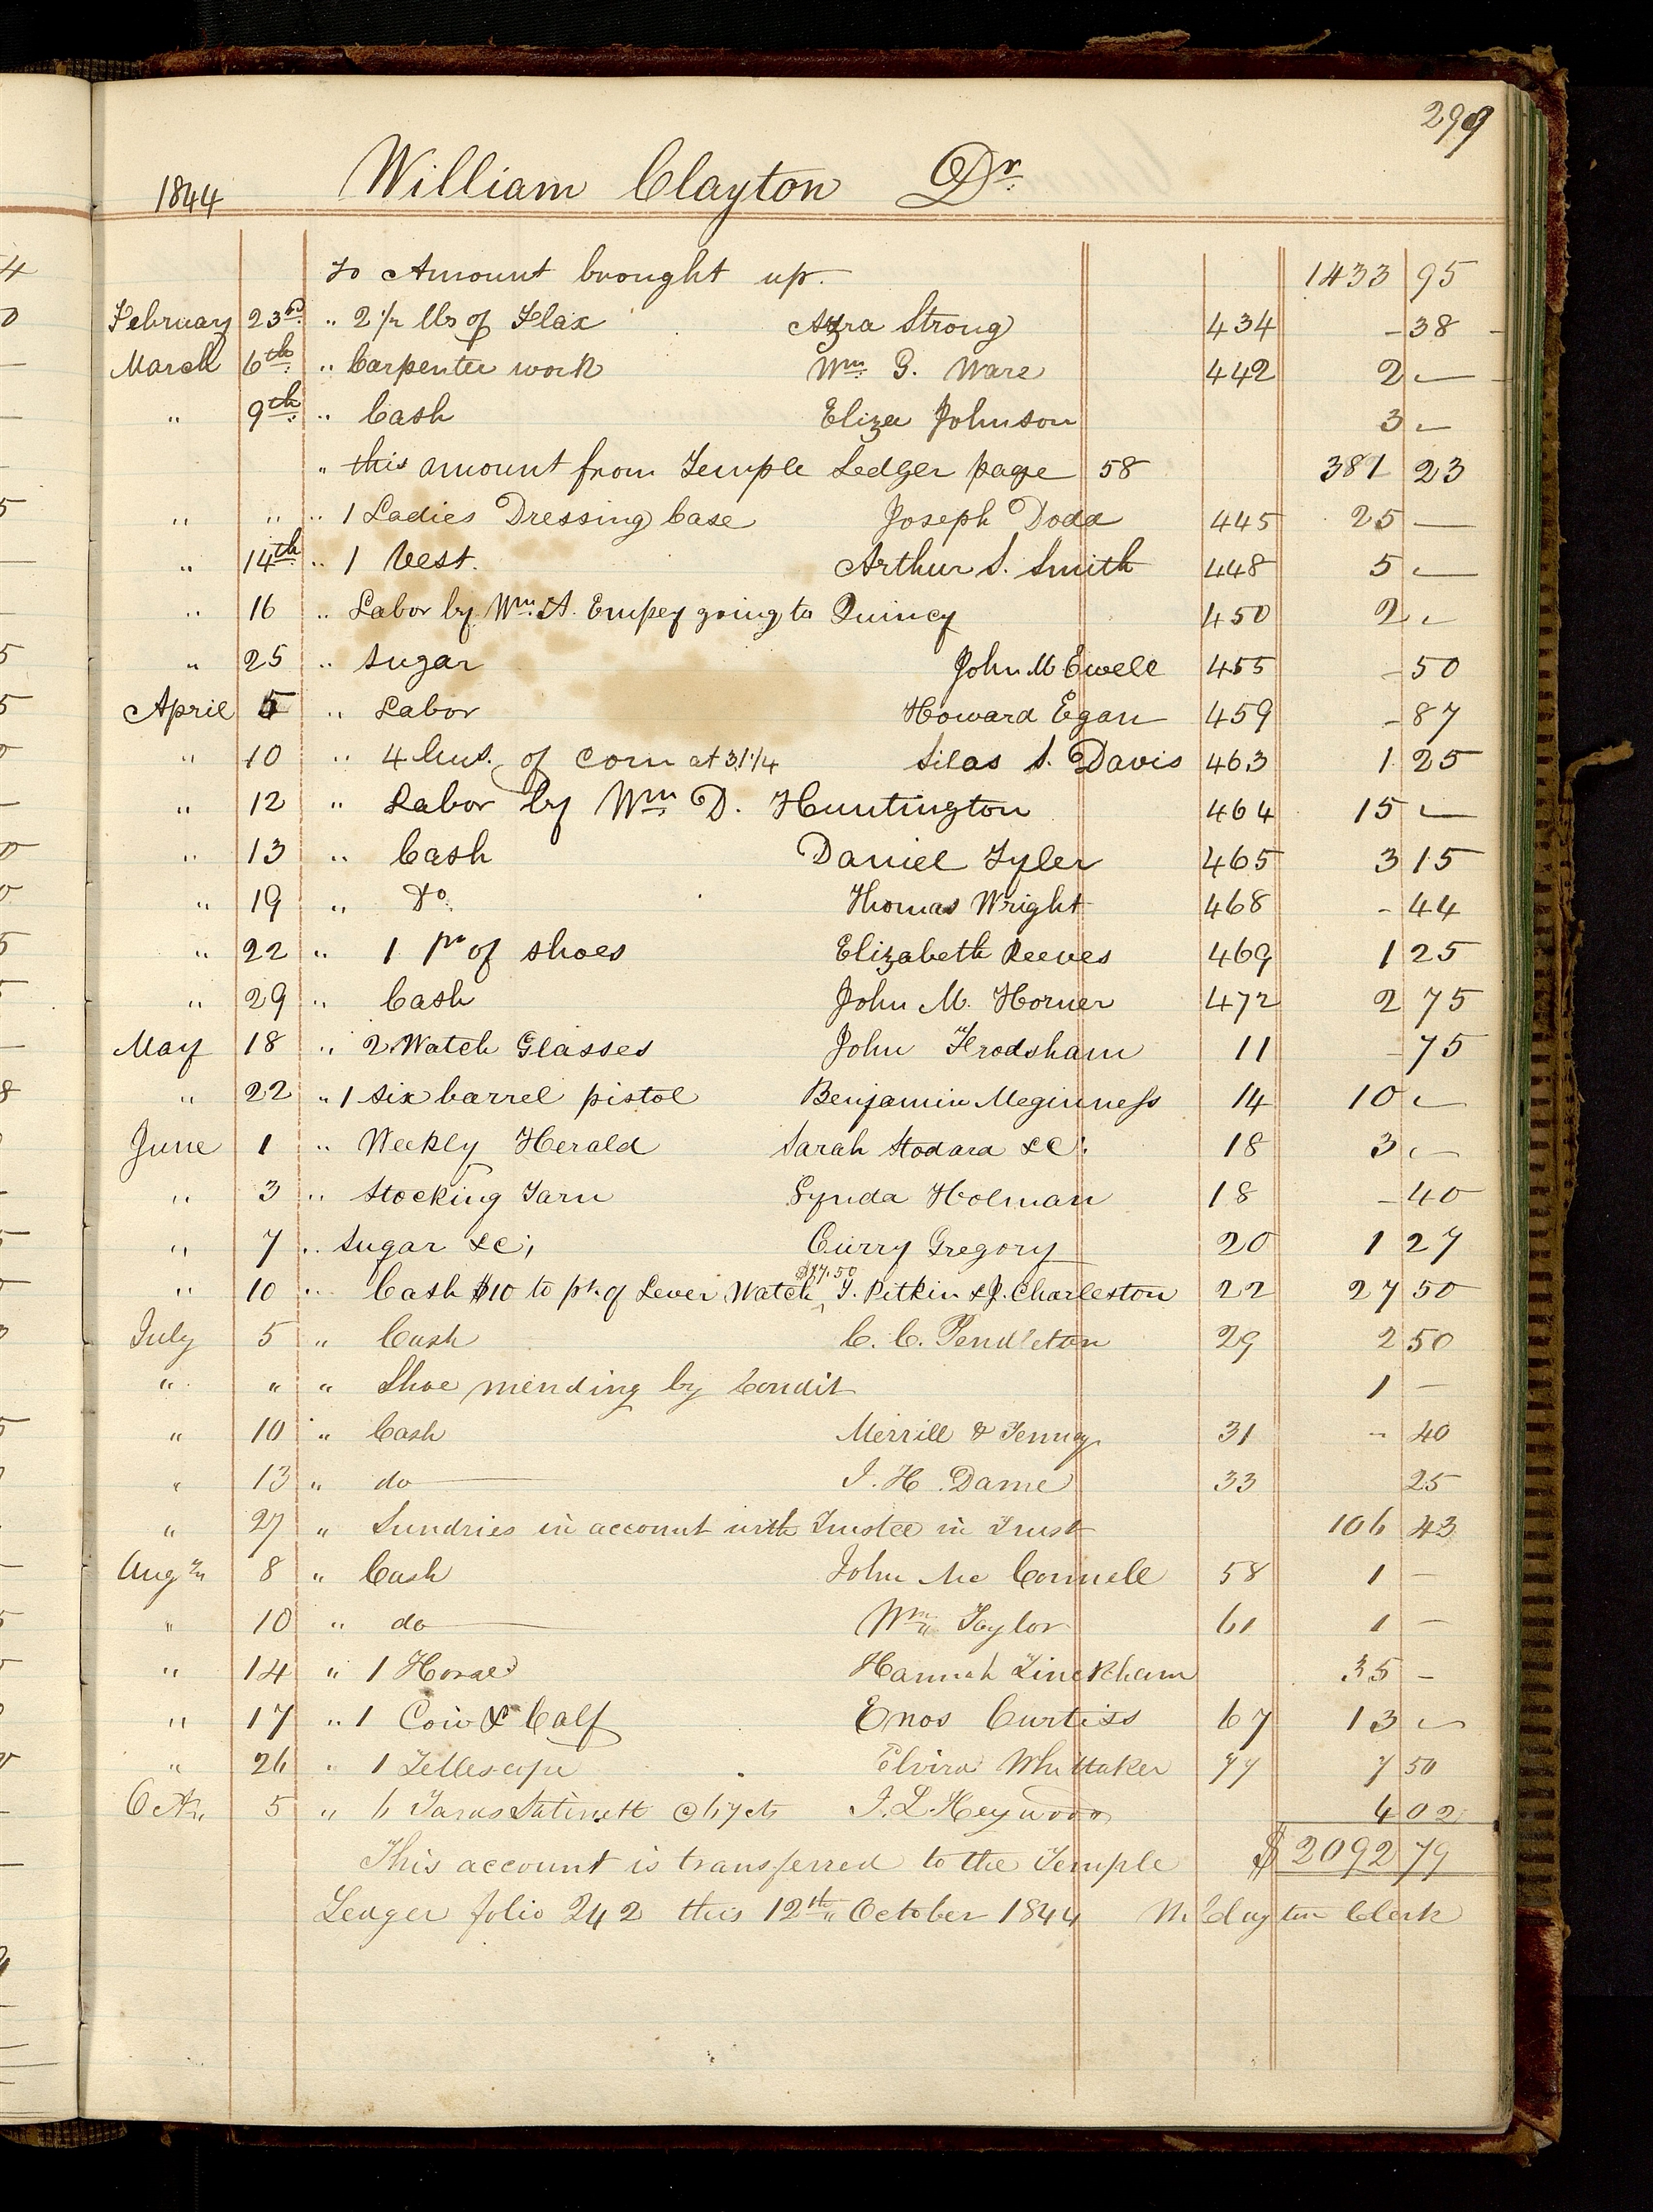 299
1844 William Clayton Dr.
To Amount brought up. 1433 95
February 23rd. " 2 1/2 lbs of Flax Azra Strong 434 - 38
March 6th. " Carpenter work Wm. G. Ware 442 2 —
" 9th. " Cash Eliza Johnson 3 —
" this amount from Temple Ledger page 58 381 23
" " " 1 Ladies Dressing Case Joseph Dodd 445 25 —
" 14th. " 1 Vest. Arthur S. Smith 448 5 —
" 16 " Labor by Wm. A. Empey going to Quincy 450 2 -
" 25 " Sugar John M Ewell 455 - 50
April 5 " Labor Howard Egan 459 - 87
" 10 " 4 bus. of Corn at 31 1/4 Silas S. Davis 463 1 25
" 12 " Labor by Wm. D. Huntington 464 15 —
" 13 " Cash Daniel Tyler 465 3 15
" 19 " Do. Thomas Wright 468 - 44
" 22 " 1 pr of shoes Elizabeth Reeves 469 1 25
" 29 " Cash John M. Horner 472 2 75
May 18 " 2 Watch Glasses John Frodsham 11 - 75
" 22 " 1 six barrel pistol Benjamin Meginness 14 10 -
June 1 " Weekly Herald Sarah Stodard &c. 18 3 -
" 3 " Stocking Yarn Lynda Holman 18 - 40
" 7 " Sugar &c, Curry Gregory 20 1 27
" 10 " Cash $10 to pt. of Lever Watch $17.50 T. Pitkin & J. Charleston 22 27 50
July 5 " Cash C. C. Pendleton 29 2 50
" " " Shoe mending by Condit 1 —
" 10 " Cash Merrill & Tenney 31 - 40
" 13 " do — J. H. Dame 33 25
" 27 " Sundries in account with Trustee in Trust 106 43
Augt. 8 " Cash John Mc Connell 58 1 —
" 10 " do — Wm. Taylor 61 1 —
" 14 " 1 Horse Hannah Tinckham 35 —
" 17 " 1 Cow & Calf Enos Curtiss 67 13 -
" 26 " 1 Tellescope Elvira Whittaker 77 7 50
Oct. 5 " 6 Yards Satinett @ 67 cts J. L. Heywood 4 02
This account is transferred to the Temple $ 2092 79
Leager folio 242 this 12th. October 1844 W. Clayton Clerk